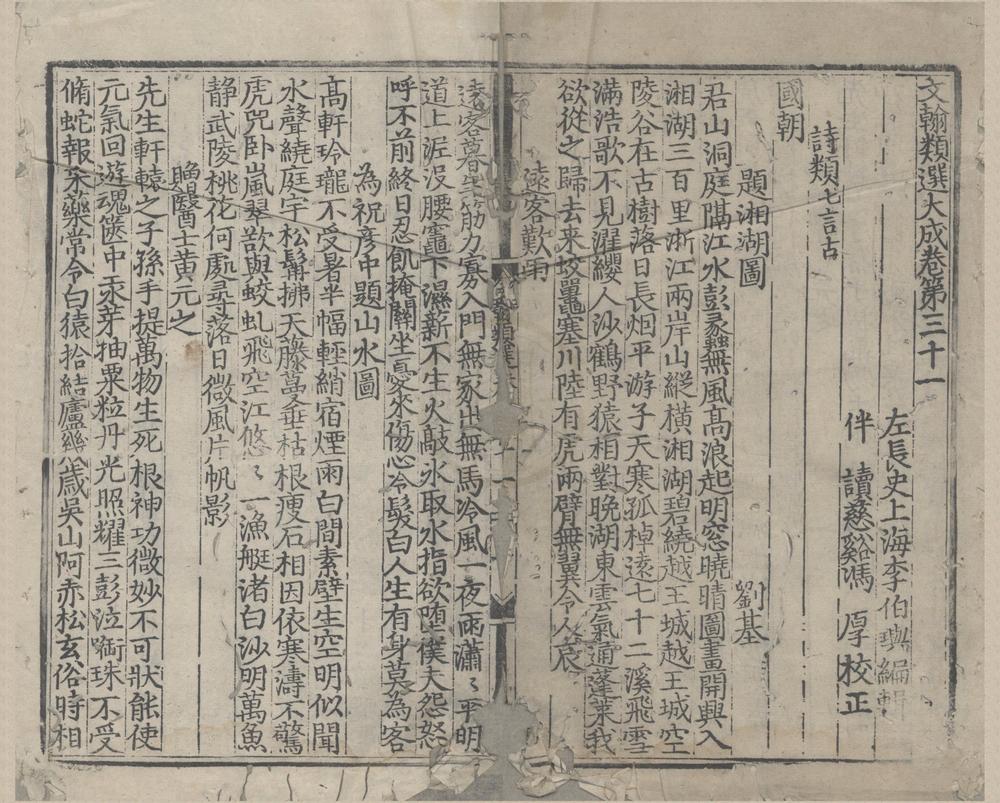 文翰類選大成卷第三十一
左長史上海李伯璵編輯
伴讀慈谿馮厚校正
詩類七言古
國朝
題湘湖圖 劉基
君山洞庭隔江水彭蠡無風高浪起明窓曉晴圖畫開興入
湘湖三百里浙江兩岸山縱橫湘湖碧繞越王城越王城空
陵谷在古樹落日長烟平游子天寒孤棹遠七十二溪飛雪
滿浩歌不見濯纓人沙鶴野猿相對晩湖東雲氣通蓬萊我
欲從之歸去来蛟鼉塞川陸有虎兩臂無翼令人哀
遠客歎雨
遠客暮至筋力寡入門無家出無馬冷風一夜雨瀟〻平明
道上泥没腰竈下濕薪不生火敲氷取水指欲堕僕夫怨怒
呼不前終日忍飢掩關坐憂來傷心冷髮白人生有身莫為客
為祝彦中題山水圖
高軒玲瓏不受暑半幅輕綃宿煙雨白間素壁生空明似聞
水聲繞庭宇松髯拂天藤蔓垂枯根瘦石相因依寒濤不驚
虎兕卧嵐翠欲與蛟虬飛空江悠〻一漁艇渚白沙明萬魚
静武陵桃花何處尋落日微風片帆影
贈醫士黄元之
先生軒轅之子孫手提萬物生死根神功微妙不可狀能使
元氣回遊魂篋中汞芽抽粟粒丹光照耀三彭泣㗸珠不受
脩蛇報采藥常令白猿拾結廬幾歲吳山阿赤松玄俗時相